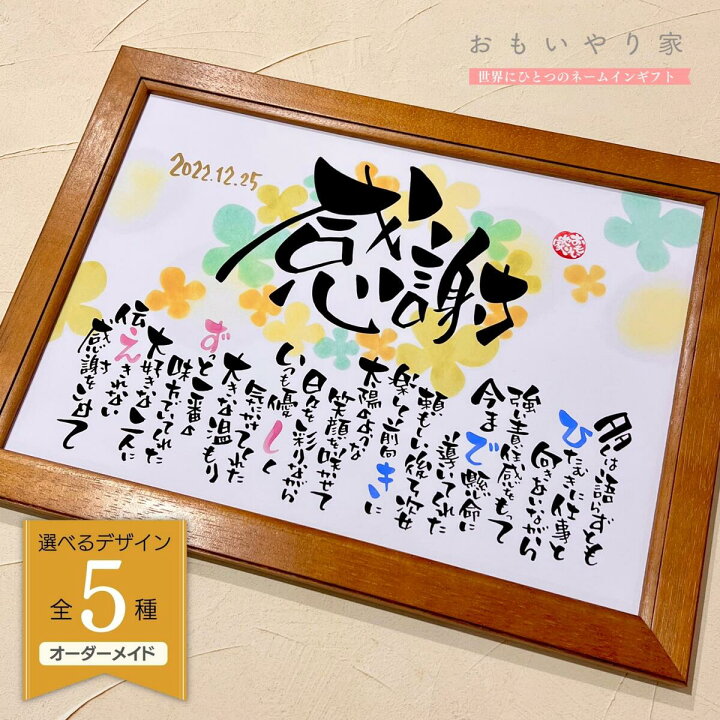 おもいやり家
世界にひとつのネームインギフト
2022.12.25
感謝
多くは語らずとも
ひたむきに仕事と
向きあいながら
強い責任感をもって
今まで懸命に
導いてくれた
頼もしい後ろ姿
楽しく前向きに
太陽のような
笑顔を咲かせて
日々を彩りながら
いつも優しく
気にかけてくれた
大きな温もり
ずっと一番の
味方でいてくれた
大好きな二人に
伝えきれない
感謝をこめて
選べるデザイン
全5種
オーダーメイド